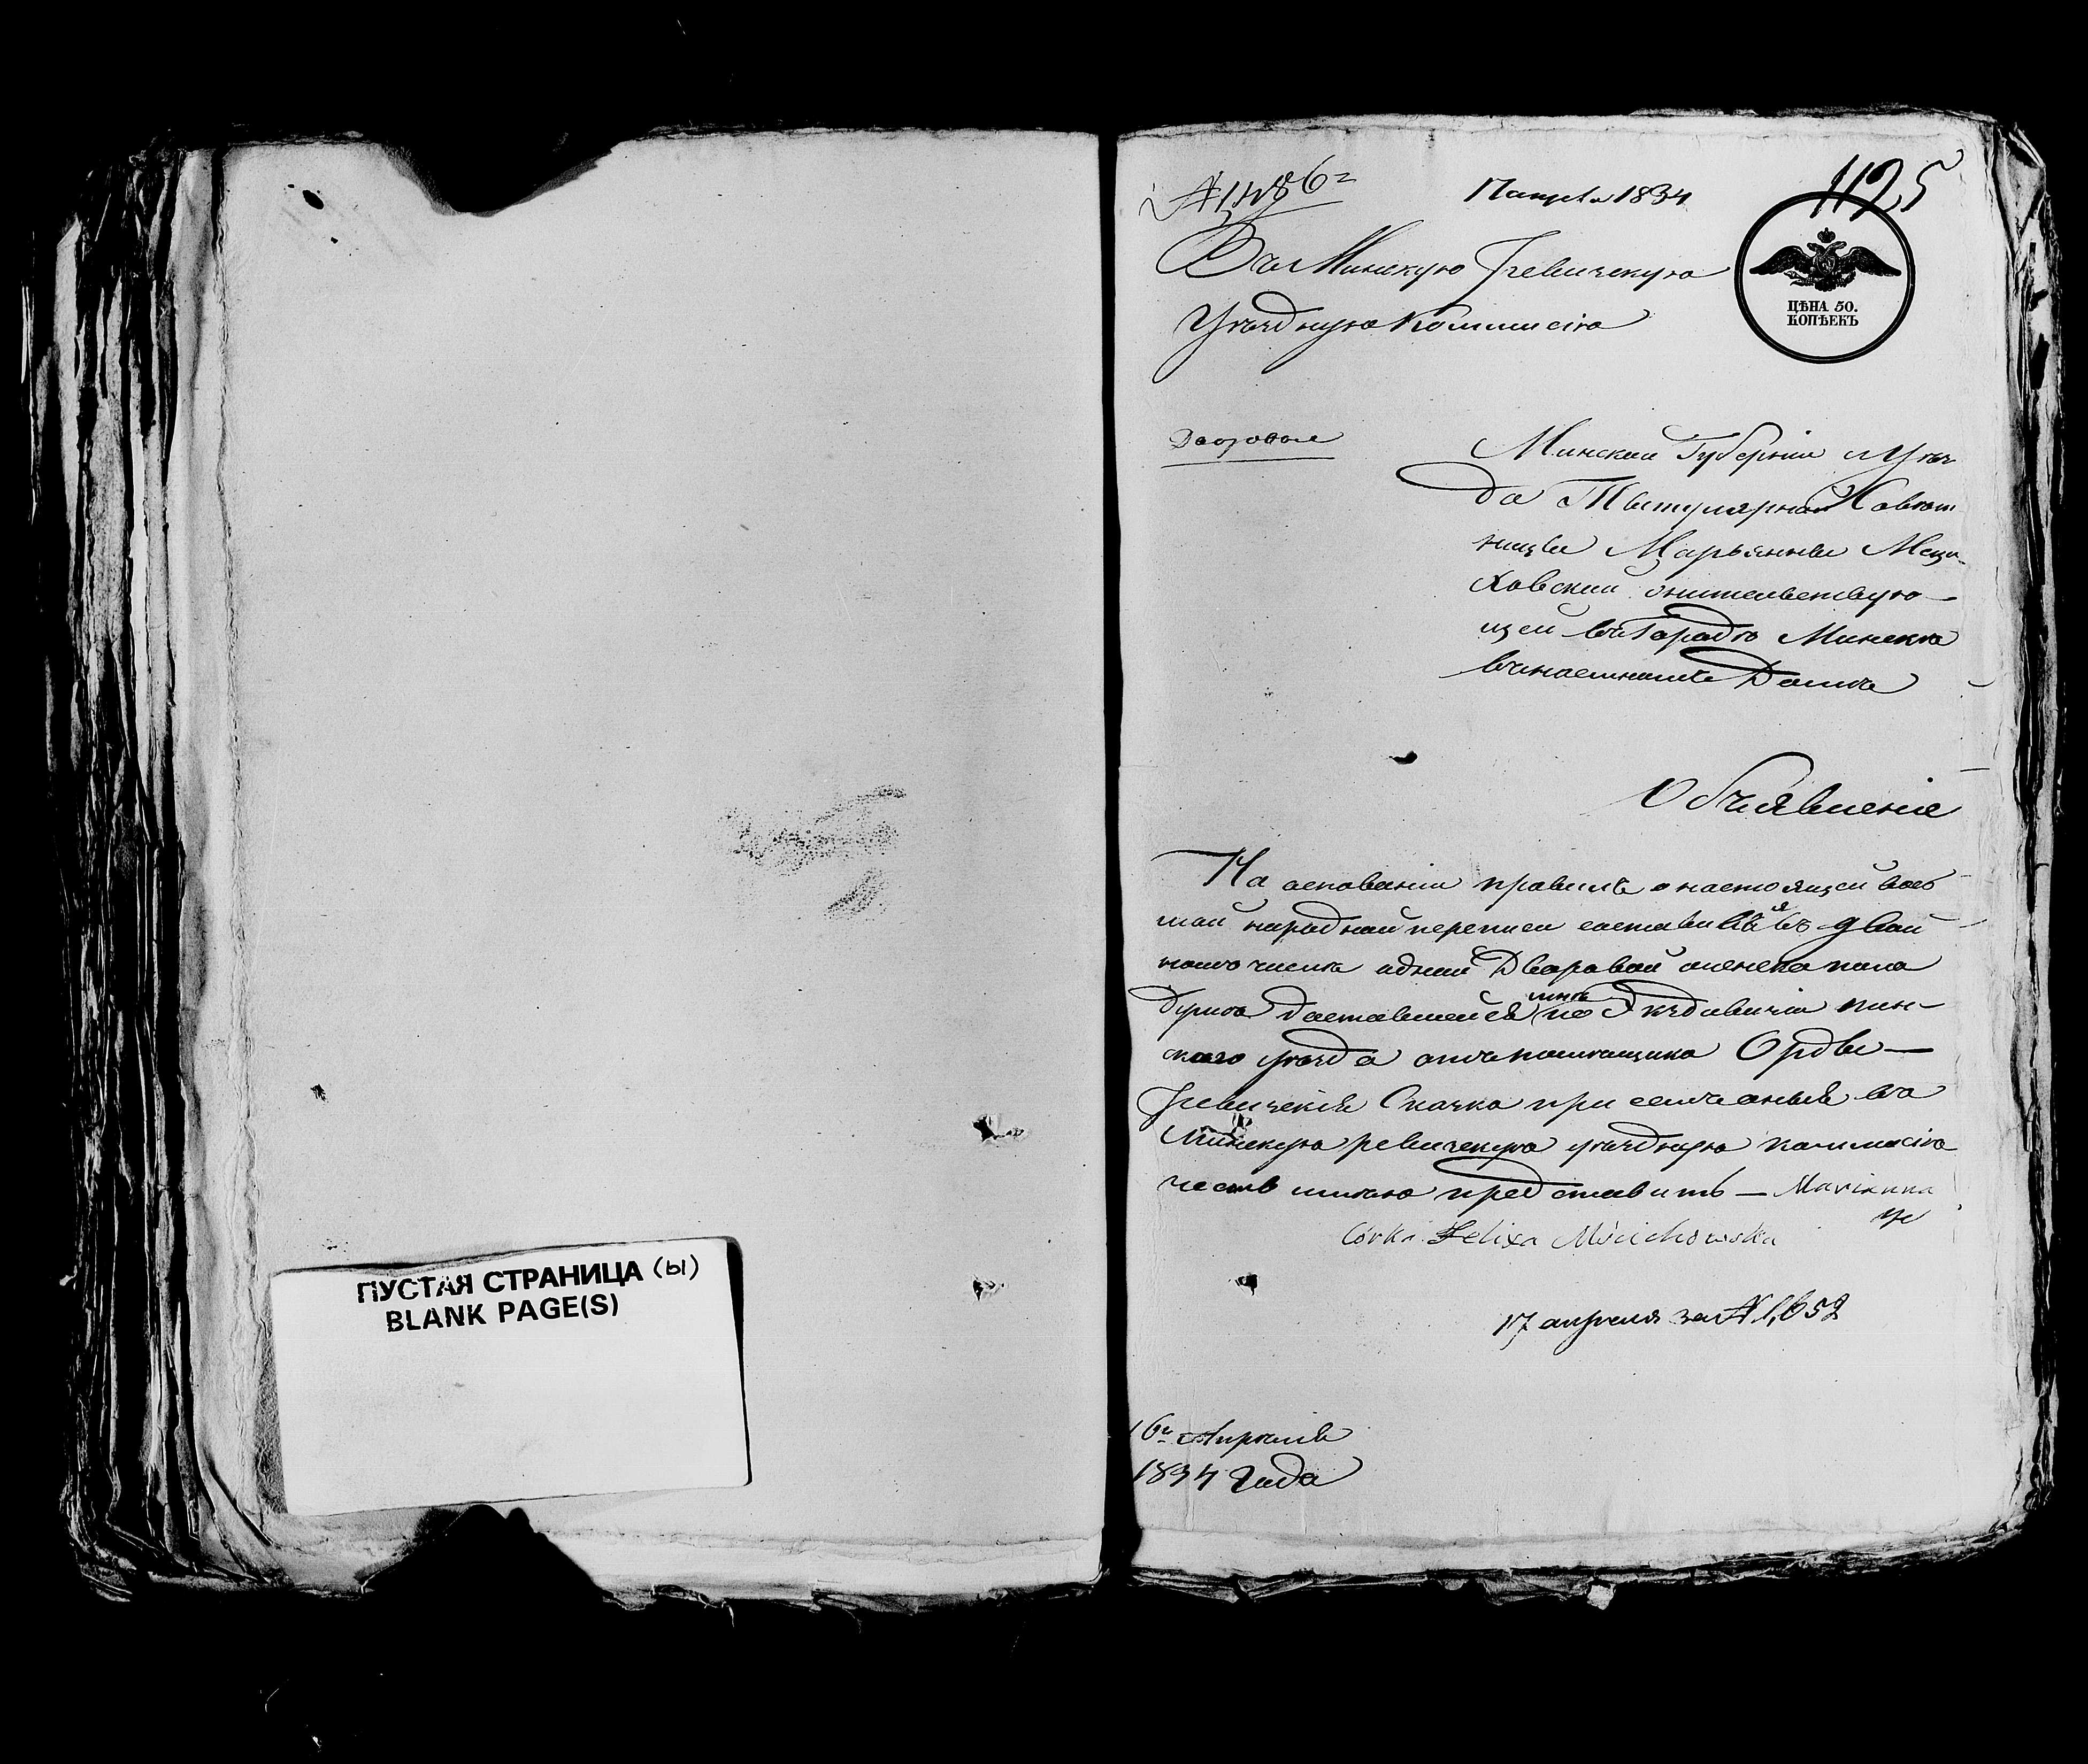 ПУСТАЯ СТРАНИЦА (ы)
BLANK PAGE(S)
№ 1,486
17 апреля 1834
1125
ЦѢНА 50.
КОПѢЕКЪ
Въ Минскую Ревизскую
Уѣздную Коммисію
Дворовые
Минской Губерніи и Уѣз
да Тытулярной Совѣт
ницы Марьянны
жительствую
щей въ Городѣ Минскѣ
въ наемномъ Домѣ
Объявленіе
На основаніи правилъ о настоящей вось
мой народной переписи составивъ въ двой
номъ числѣ одной Дворовой женска пола
души доставшейся мнѣ по пин-
скаго уѣзда отъ помѣщика Орды
Ревизскія Сказки при семъ оныя въ
Минскую ревизскую уѣздную коммисію
честь имѣю представить — Marianna
Córka Felixa Mścichowska
17 апреля за № 1,652
16г Апрѣля
1834 Года